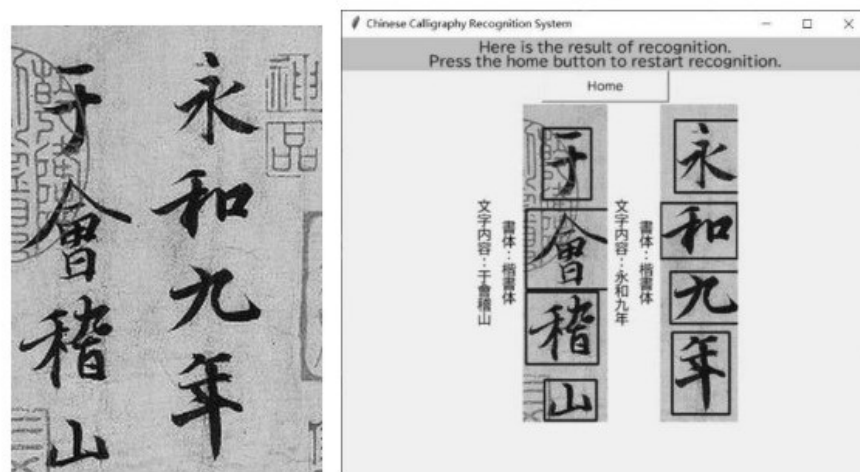 永和九年
于會稽山
神品
Chinese Calligraphy Recognition System
Here is the result of recognition.
Press the home button to restart recognition.
Home
永和九年
書体：楷書体
文字内容：永和九年
于會稽山
書体：楷書体
文字内容：于會稽山